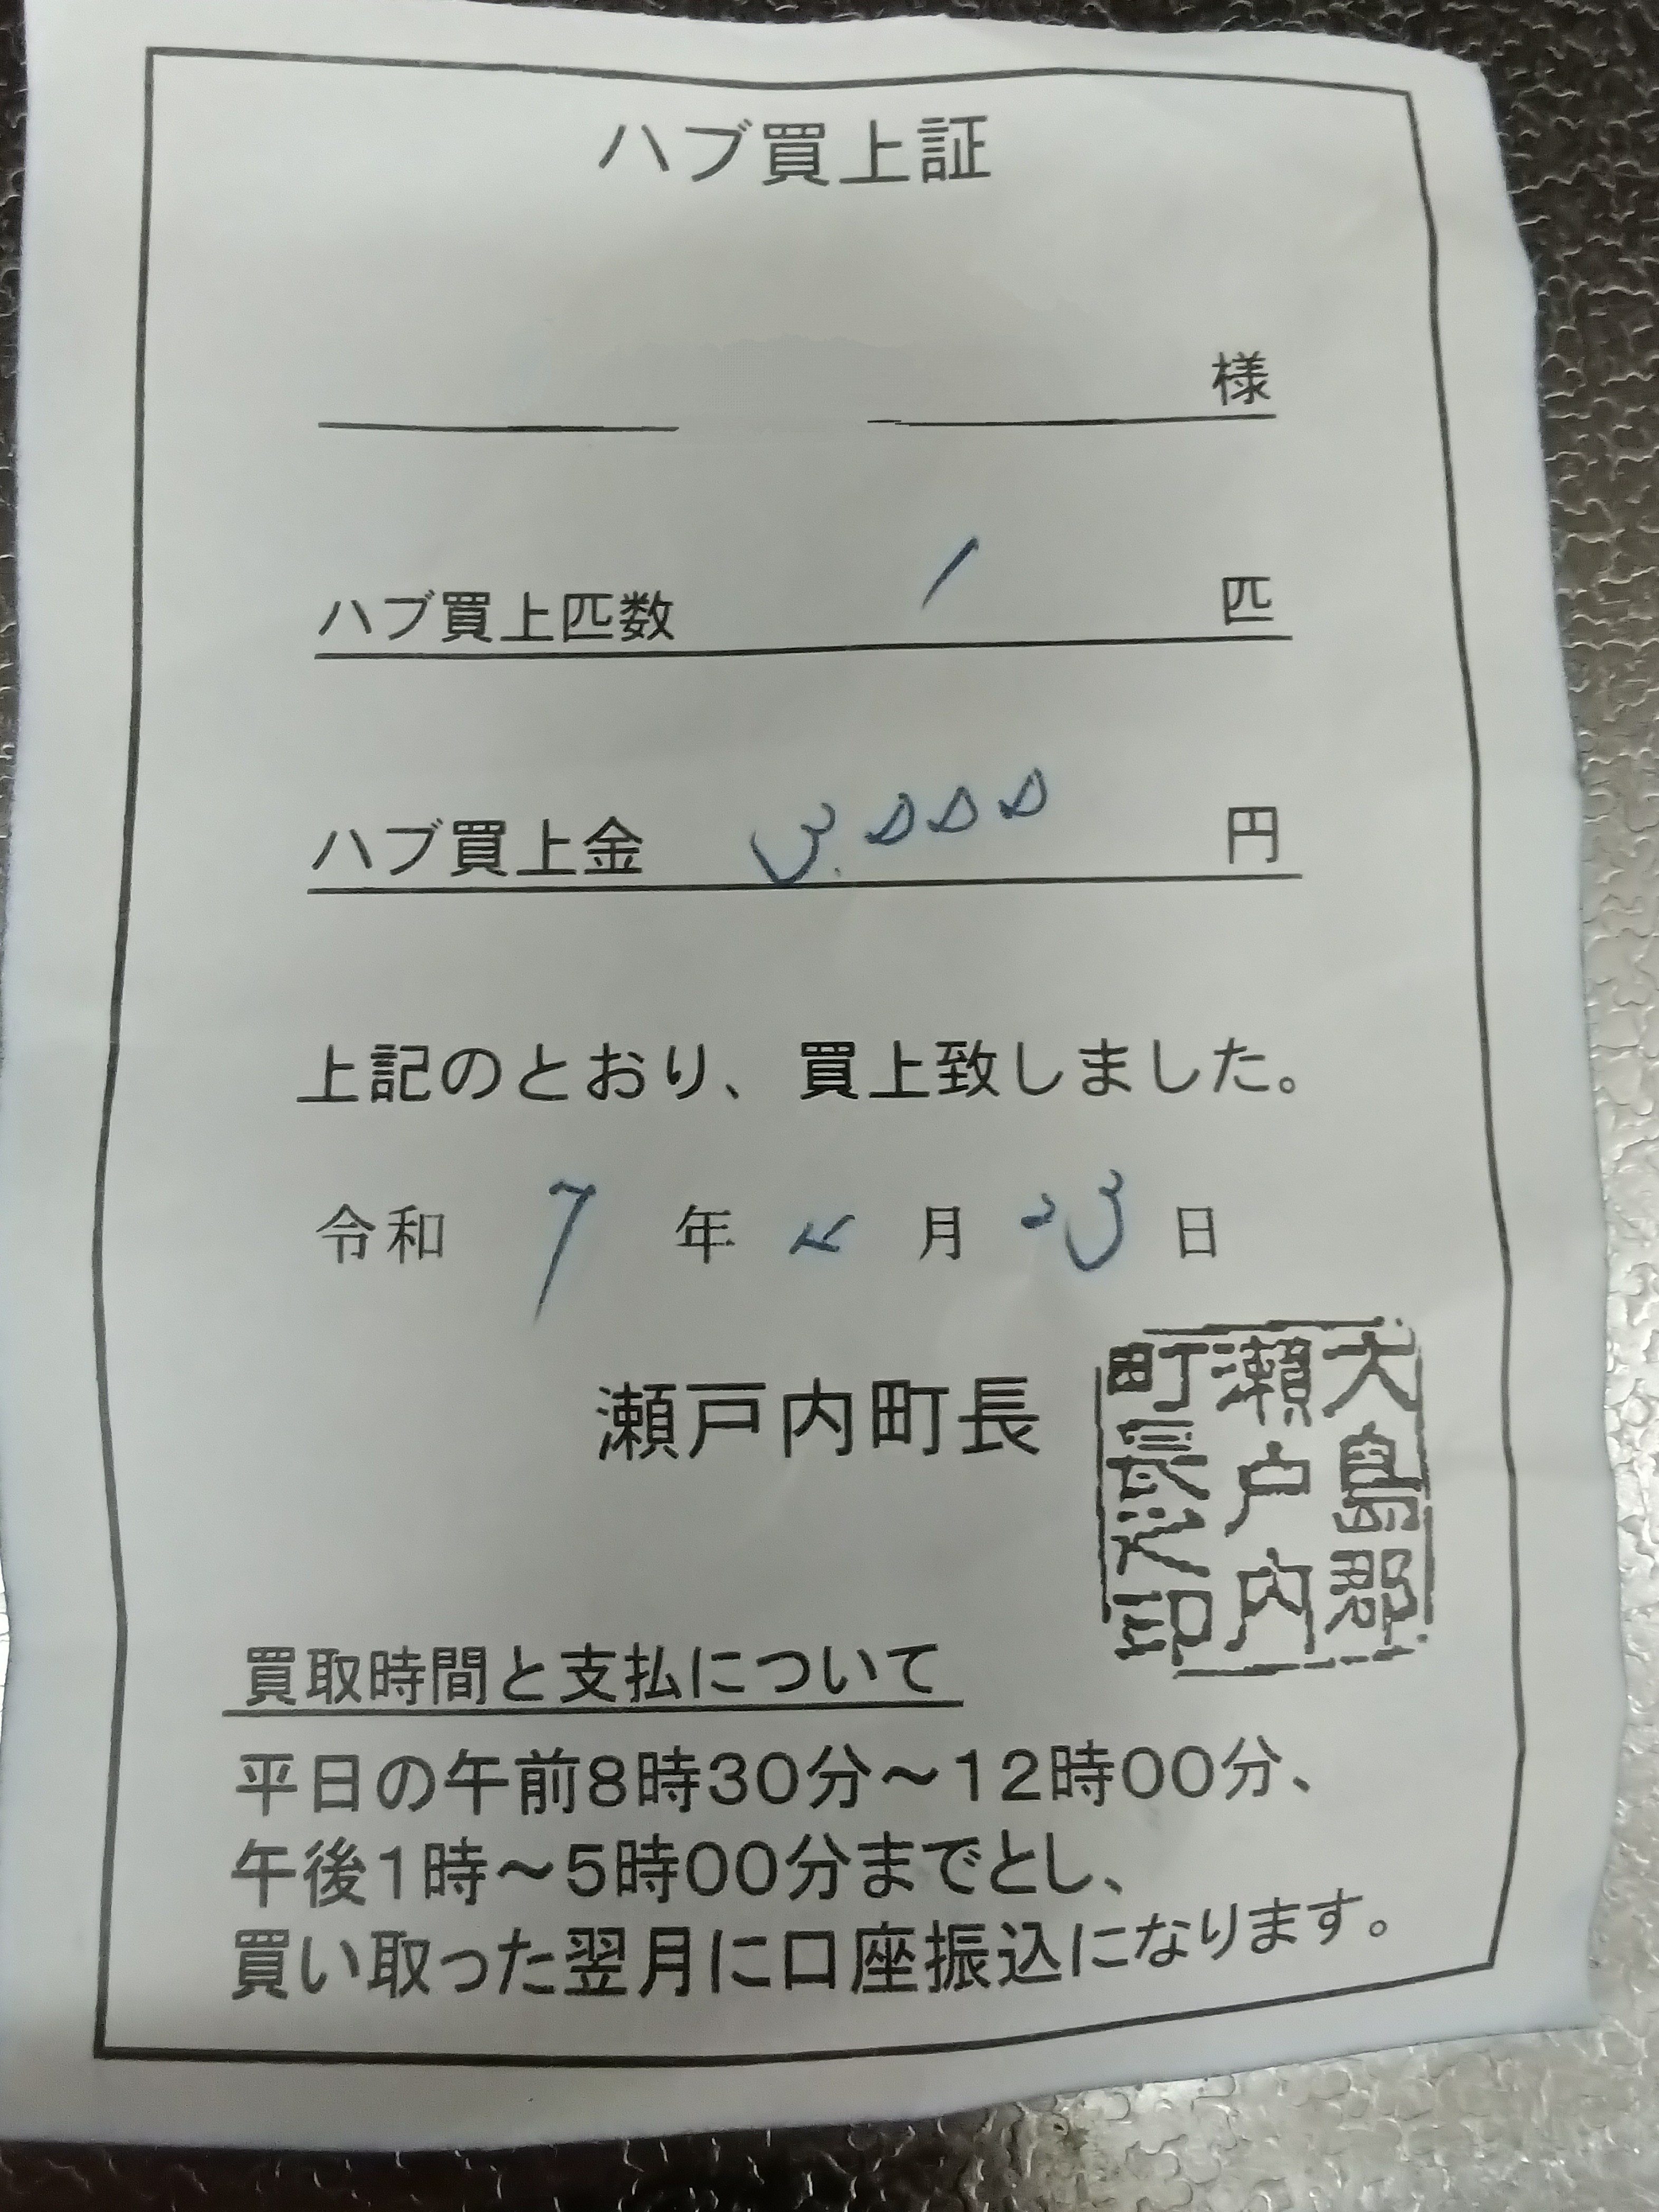 ハブ買上証
様
ハブ買上匹数 1 匹
ハブ買上金 3.000 円
上記のとおり、買上致しました。
令和 7 年 月 23 日
瀬戸内町長
大島郡
瀬戸内
町長之印
買取時間と支払について
平日の午前8時30分～12時00分、
午後1時～5時00分までとし、
買い取った翌月に口座振込になります。